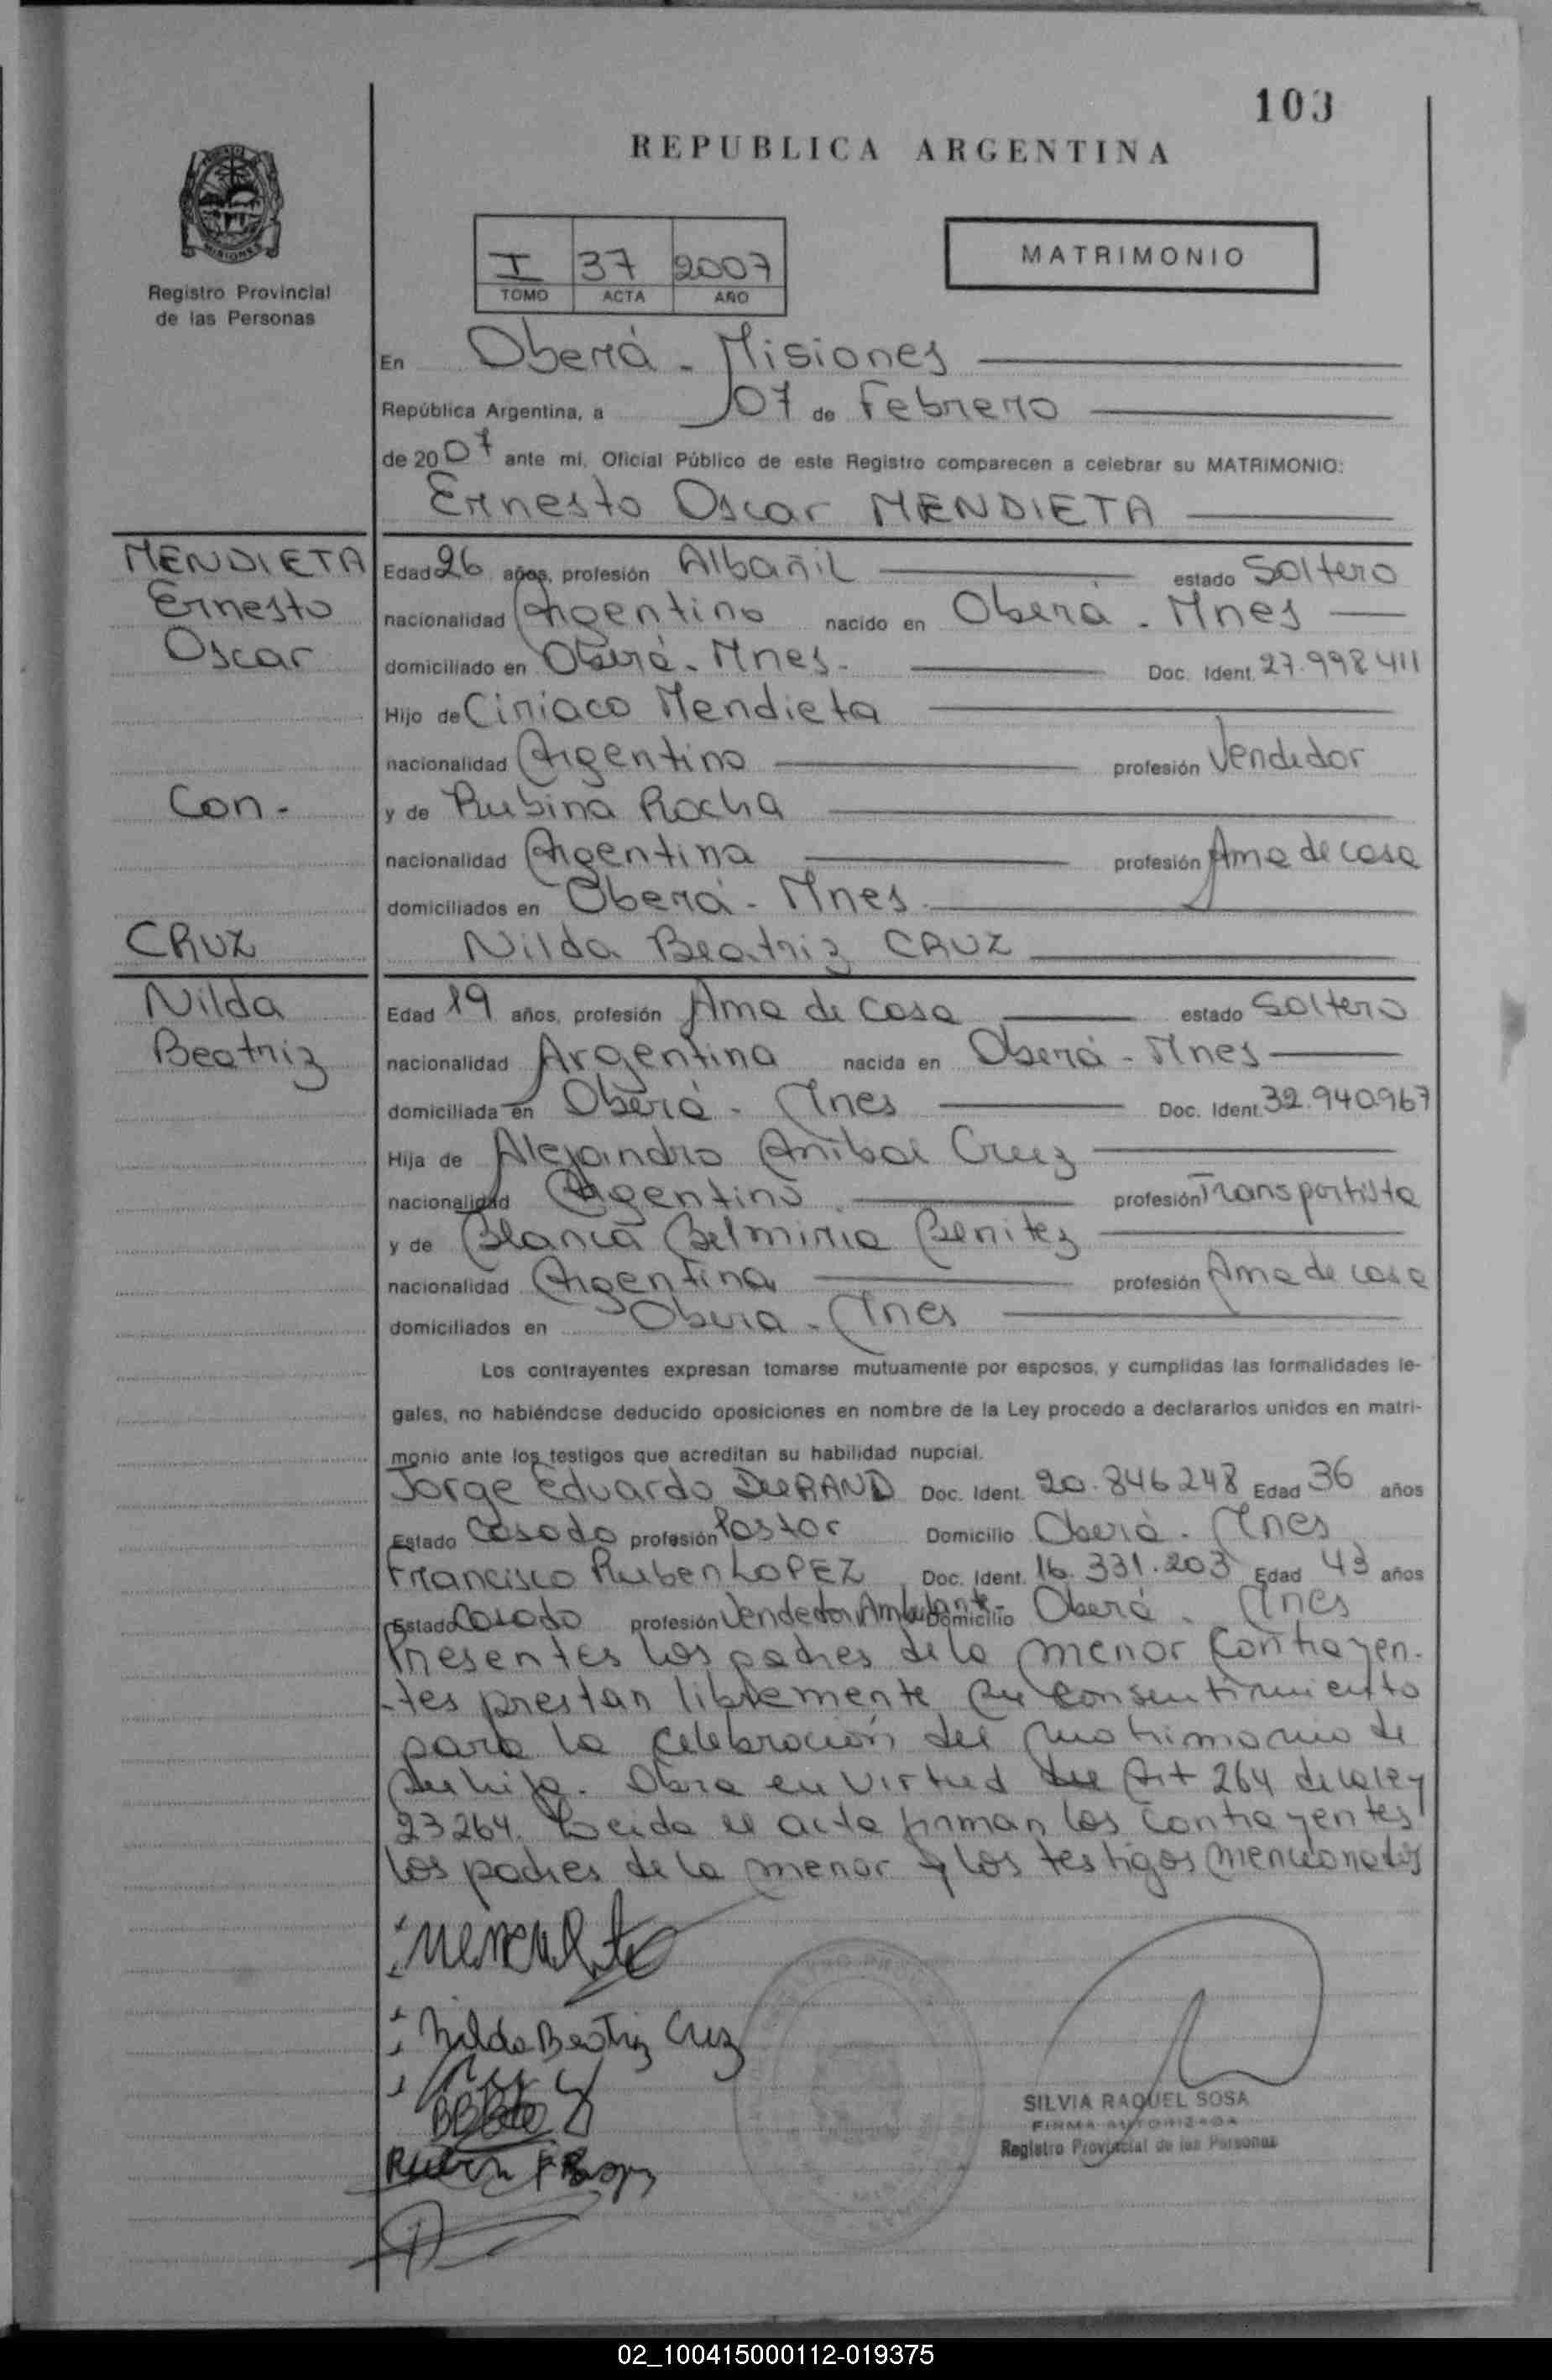 103
REPUBLICA ARGENTINA
MISIONES
Registro Provincial
de las Personas
I 37 2007
TOMO ACTA AÑO
MATRIMONIO
En Oberá - Misiones
República Argentina, a 07 de Febrero
de 2007 ante mi, Oficial Público de este Registro comparecen a celebrar su MATRIMONIO:
Ernesto Oscar MENDIETA
MENDIETA
Ernesto
Oscar
Con.-
CRUZ
Nilda
Beatriz
Edad 26 años, profesión Albañil estado Soltero
nacionalidad Argentino nacido en Oberá - Mnes
domiciliado en Oberá - Mnes - Doc. Ident. 27.998.411
Hijo de Ciriaco Mendieta
nacionalidad Argentino profesión Vendedor
y de Rubina Rocha
nacionalidad Argentina profesión Ama de casa
domiciliados en Oberá - Mnes.
Nilda Beatriz CRUZ
Edad 19 años, profesión Ama de casa estado Soltero
nacionalidad Argentina nacida en Oberá - Mnes
domiciliada en Oberá - Mnes Doc. Ident. 32.940.967
Hija de Alejandro Anibal Cruz
nacionalidad Argentino profesión Transportista
y de Blanca Belmiria Benitez
nacionalidad Argentina profesión Ama de casa
domiciliados en Obera - Mnes
Los contrayentes expresan tomarse mutuamente por esposos, y cumplidas las formalidades le-
gales, no habiéndose deducido oposiciones en nombre de la Ley procedo a declararlos unidos en matri-
monio ante los testigos que acreditan su habilidad nupcial.
Jorge Eduardo DURAND Doc. Ident. 20.846.248 Edad 36 años
Estado Casado profesión Pastor Domicilio Oberá - Mnes
Francisco Ruben LOPEZ Doc. Ident. 16.331.203 Edad 43 años
Estado Casado profesión Vendedor Ambulante - Domicilio Oberá - Mnes
Presentes los padres de la menor contrayen-
-tes prestan libremente su consentimiento
para la celebración del matrimonio de
su hija. Obra en virtud del Art 264 de la ley
23264. Leida el acta firman los contrayentes
los padres de la menor y los testigos mencionados
Nilda Beatriz Cruz
SILVIA RAQUEL SOSA
FIRMA AUTORIZADA
Registro Provincial de las Personas
02_100415000112-019375